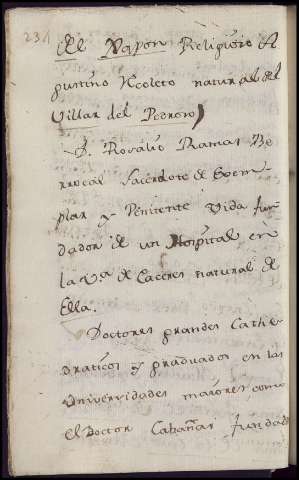 234
del Japon Religioso A
gustino Recoleto natural del
Villar del Pedroso)
D. Rosalio Ramas Be
rrocal Sacerdote de exem-
plar y Penitente Vida fun
dador de un Hospital en
la V.ª de Caceres natural de
Ella.
Doctores grandes Cathe-
draticos y graduados en las
Universidades maiores, como
el Doctor Cabañas fundad